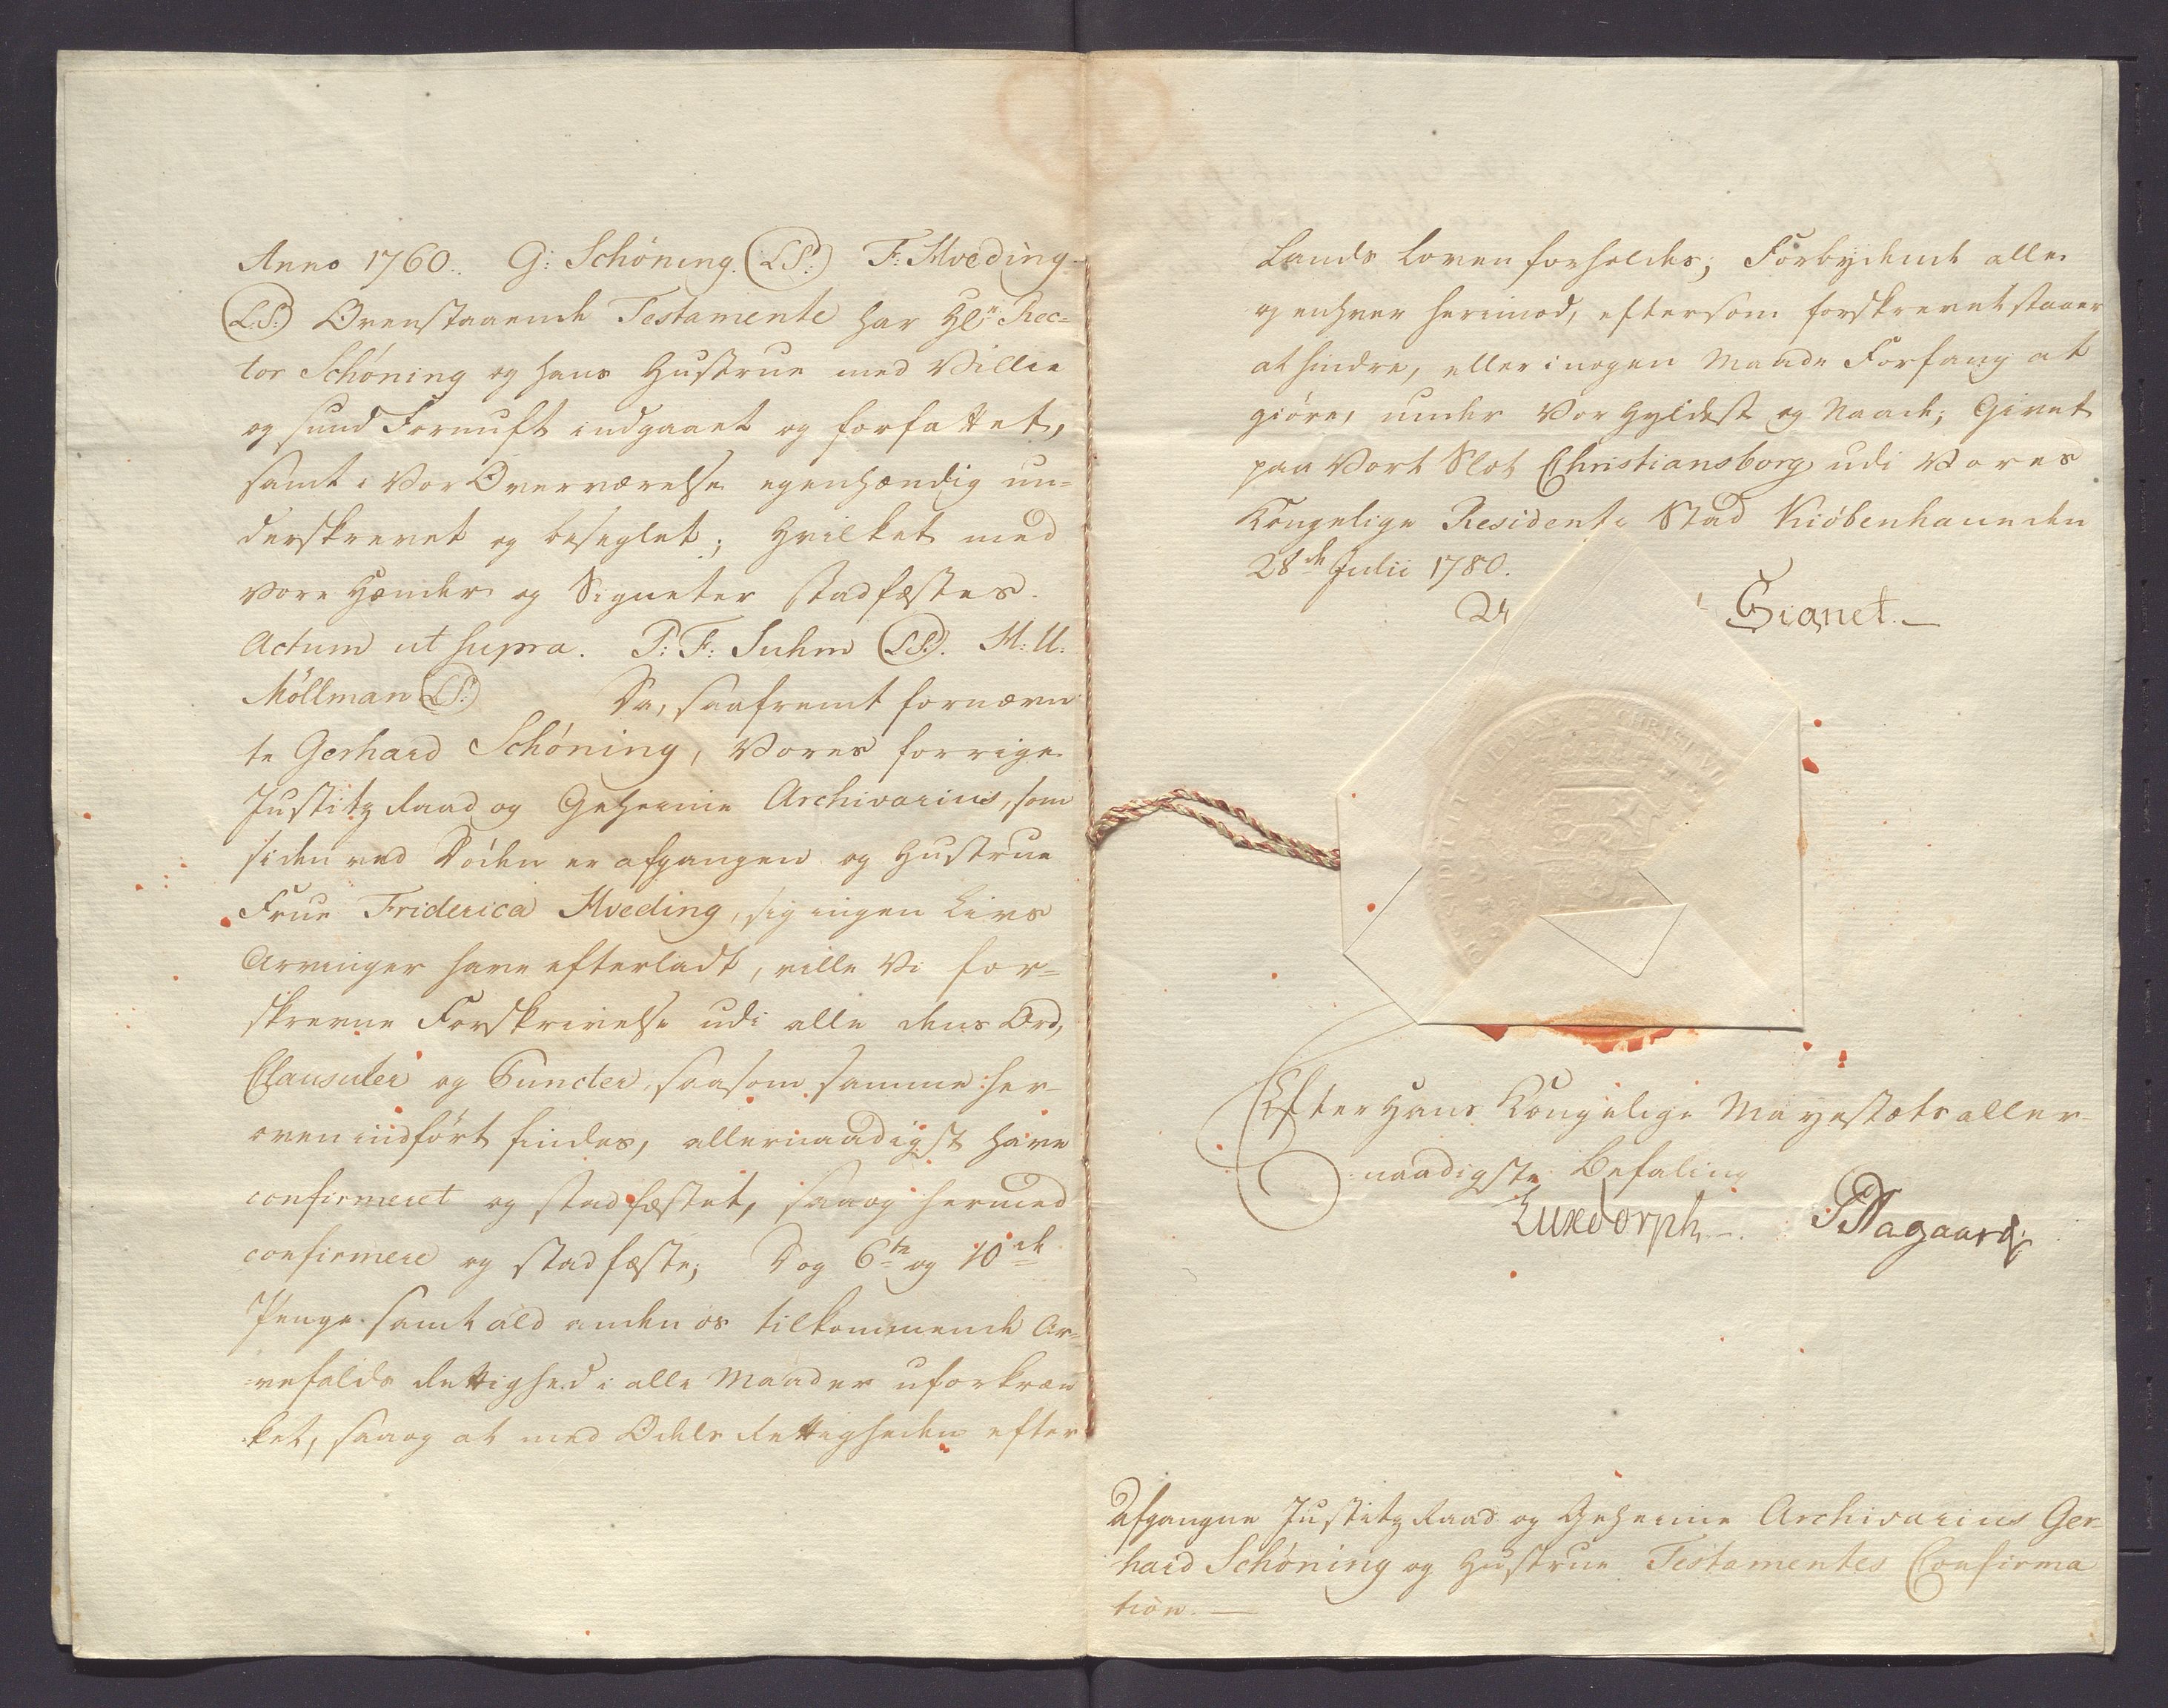 Anno 1760. G: Schöning. (L.S.) F: Hveding
(L.S.) Ovenstaaende Testamente har Hr. Rec=
tor Schöning og hans Hustrue med Villie
og sund Fornuft indgaaet og forfattet,
samt i Vor Overværelse egenhændig un=
derskrevet og beseglet; hvilket med
vore Hænder og Signeter stadfæstes.
Actum ut supra. P: F: Suhm (L.S.). H: U:
Möllman (L.S.) Da, saafremt fornævn
te Gerhard Schöning, Vores forrige
Justitz Raad og Geheime Archivarius, som
siden ved Döden er afgangen og Hustrue
Frue Friderica Hveding, sig ingen Livs
Arvinger have efterladt, ville Vi for=
skrevne Forskrivelse udi alle dens Ord,
Clausuler og Puncter, saasom samme her
oven indfört findes, allernaadigst have
confirmeret og stadfæstet, saa og hermed
confirmere og stadfæste; Dog 6te og 10de
Penge samt ald anden os tilkommende Ar=
vefalds Rettighed i alle Maader uforkræn
ket, saa og at med Odels Rettigheden efter
Lands Loven forholdes; Forbydende alle
og enhver herimod, eftersom forskrevet staaer
at hindre, eller i nogen Maade Forfang at
giöre, under Vor Hyldest og Naade; Givet
paa Vort Slot Christiansborg udi Vores
Kongelige Residentz Stad Kiöbenhavn den
28de Julii 1780.
Signet.
Efter Hans Kongelige Mayestæts aller
naadigste Befaling
Luxdorph. Aagaard
Afgangne Justitz Raad og Geheime Archivarius Ger=
hard Schöning og Hustrue Testamentes Confirma
tion.